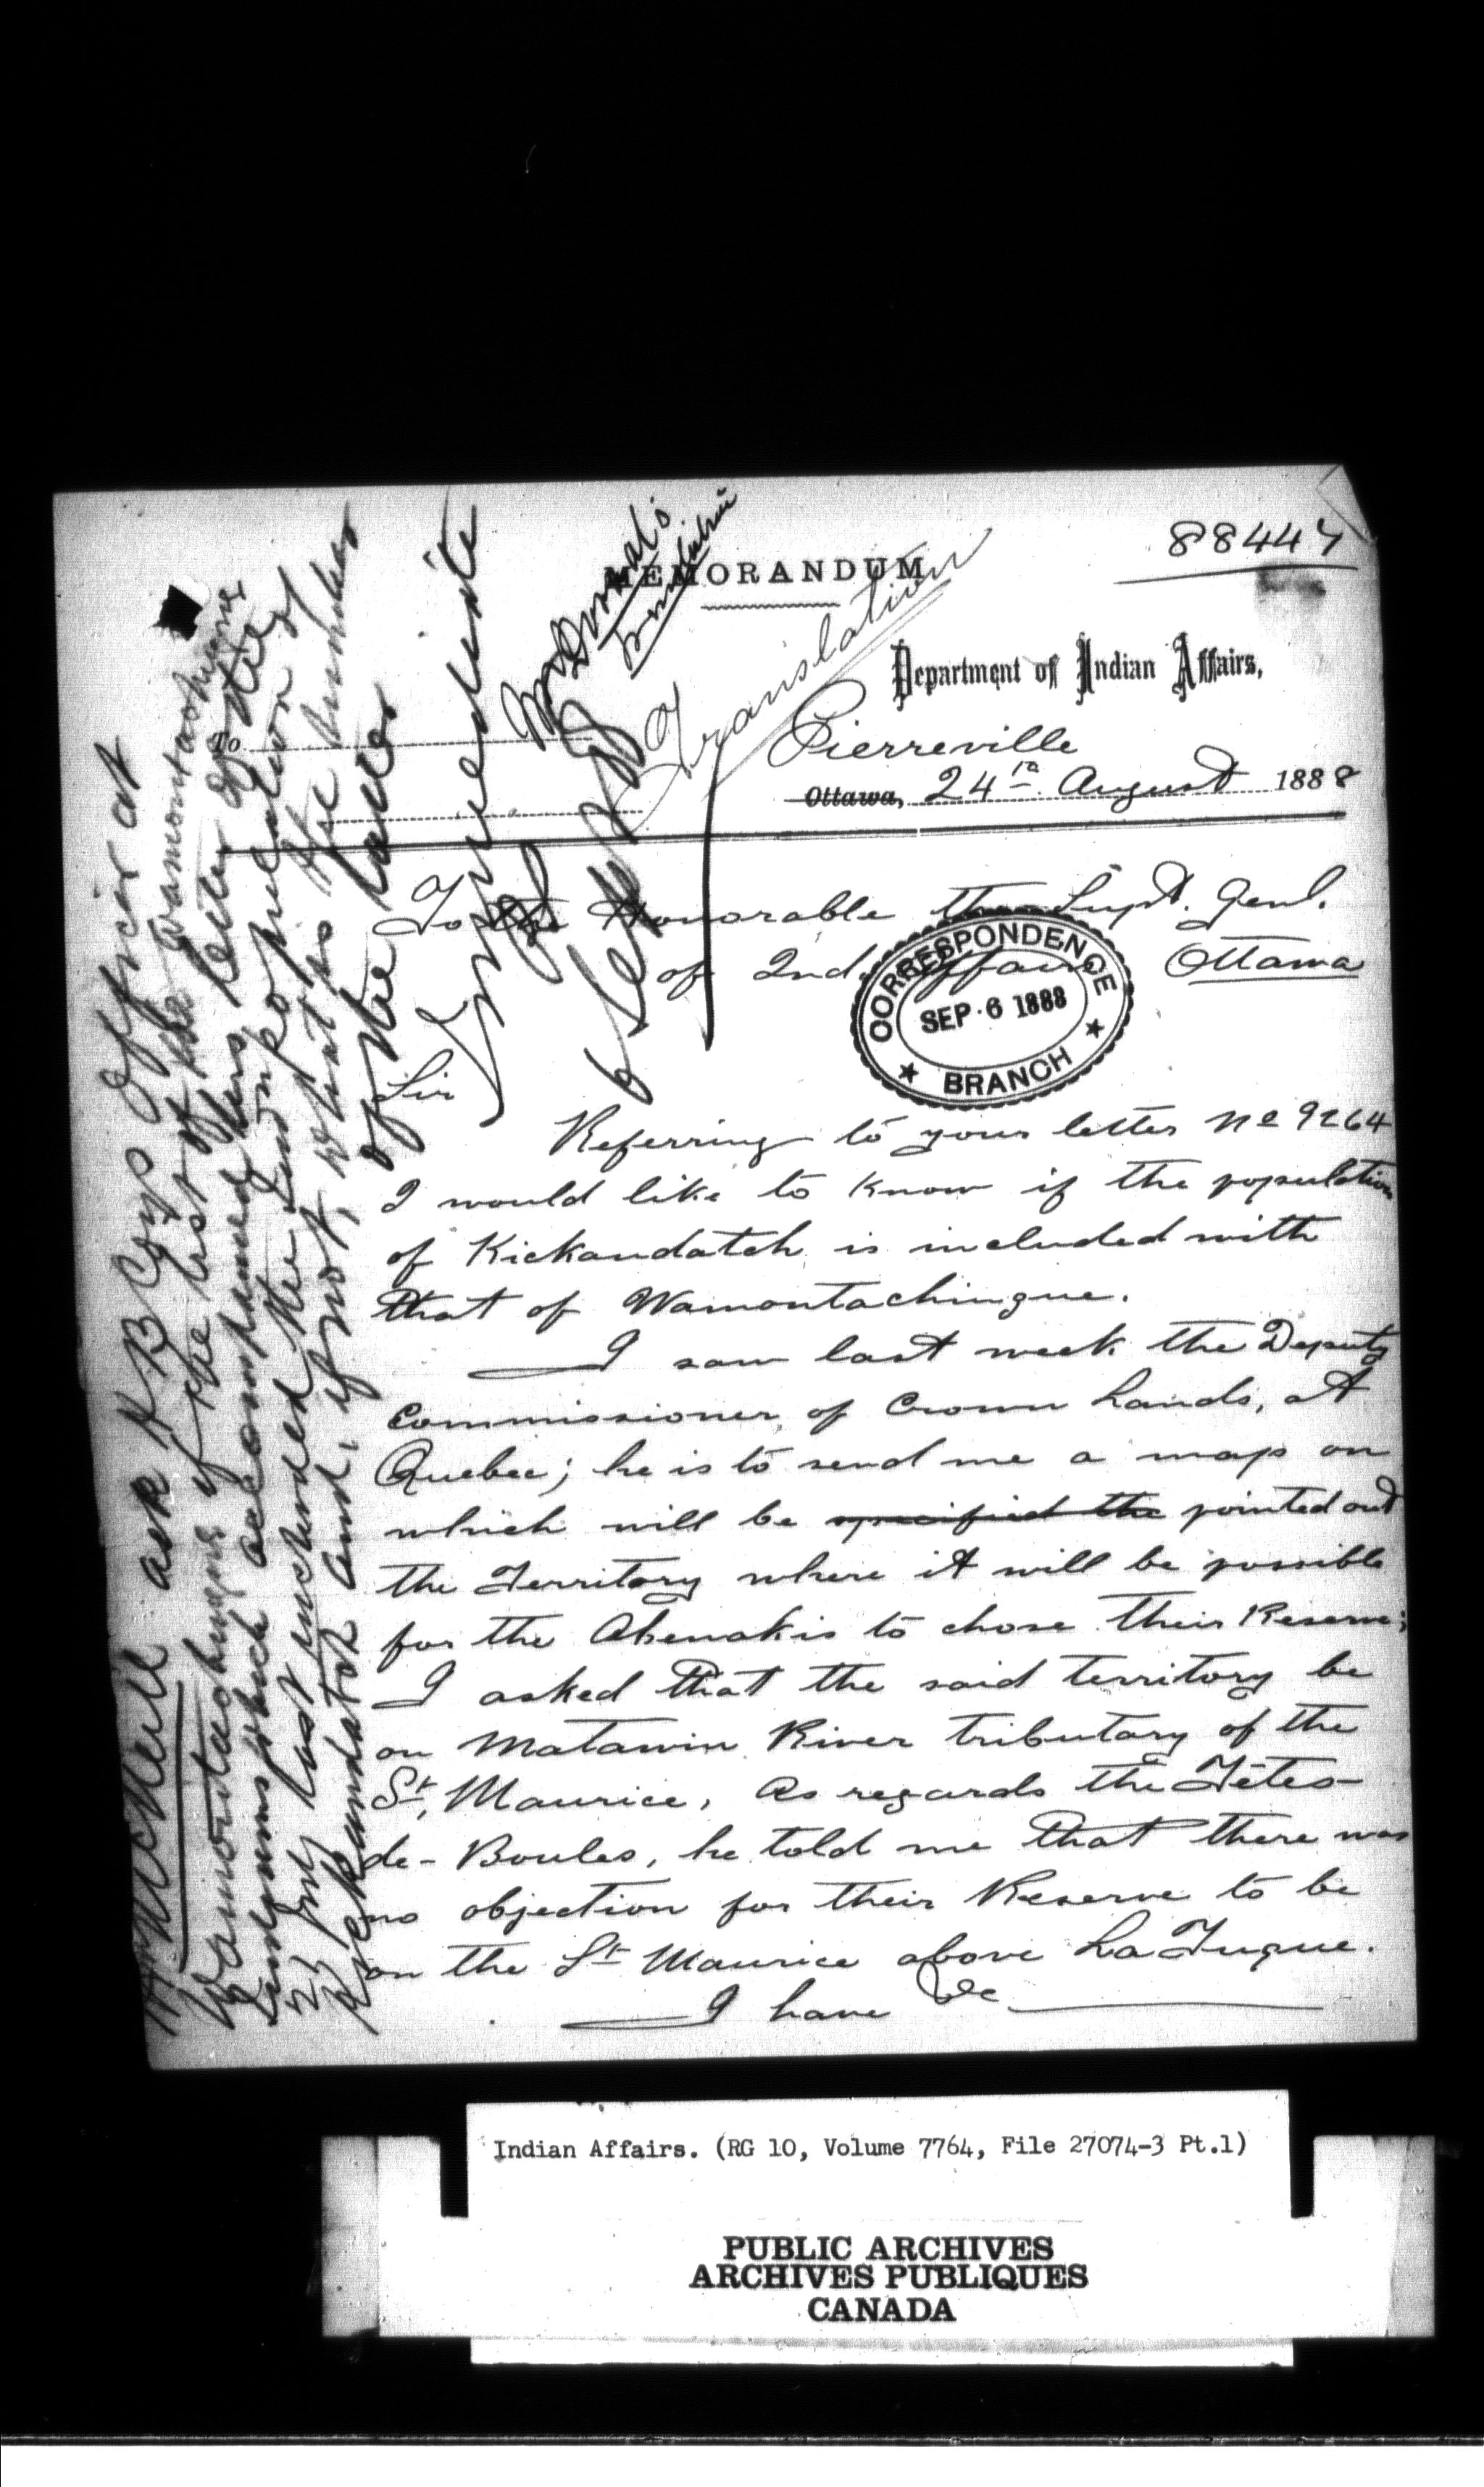 88447
MEMORANDUM
Translation
Department of Indian Affairs,
Pierreville
To
Ottawa, 24th August 1888
To the Honorable the Supt. Genl.
of Ind. Affairs Ottawa
CORRESPONDENCE
SEP. 6 1888
BRANCH
Sir
Referring to your letter No 9264
I would like to know if the population
of Kickaudatch is included with
that of Wamontachingue.
I saw last week the Deputy
Commissioner of Crown Lands, at
Quebec; he is to send me a map on
which will be specified the pointed out
the Territory where it will be possible
for the Abenakis to chose their Reserve;
I asked that the said territory be
on Matawin River tributary of the
St. Maurice, As regards the Têtes-
de-Boules, he told me that there was
no objection for their Reserve to be
on the St Maurice above LaTuque.
I have &c
Mr McNeill ask H B Coys Officer at
Wamontachingue if the list of the Wamontachingue
Indians which accompanied his letter of the
2 last included the Indian population of
Kickaudatch and, if not, what is the number
of the latter
6 Sept
Indian Affairs. (RG 10, Volume 7764, File 27074-3 Pt.1)
PUBLIC ARCHIVES
ARCHIVES PUBLIQUES
CANADA